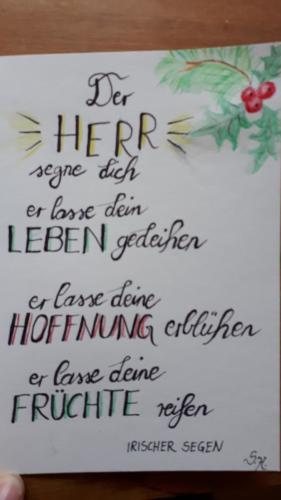 Der
HERR
segne dich
er lasse dein
LEBEN gedeihen
er lasse deine
HOFFNUNG erblühen
er lasse deine
FRÜCHTE reifen
IRISCHER SEGEN